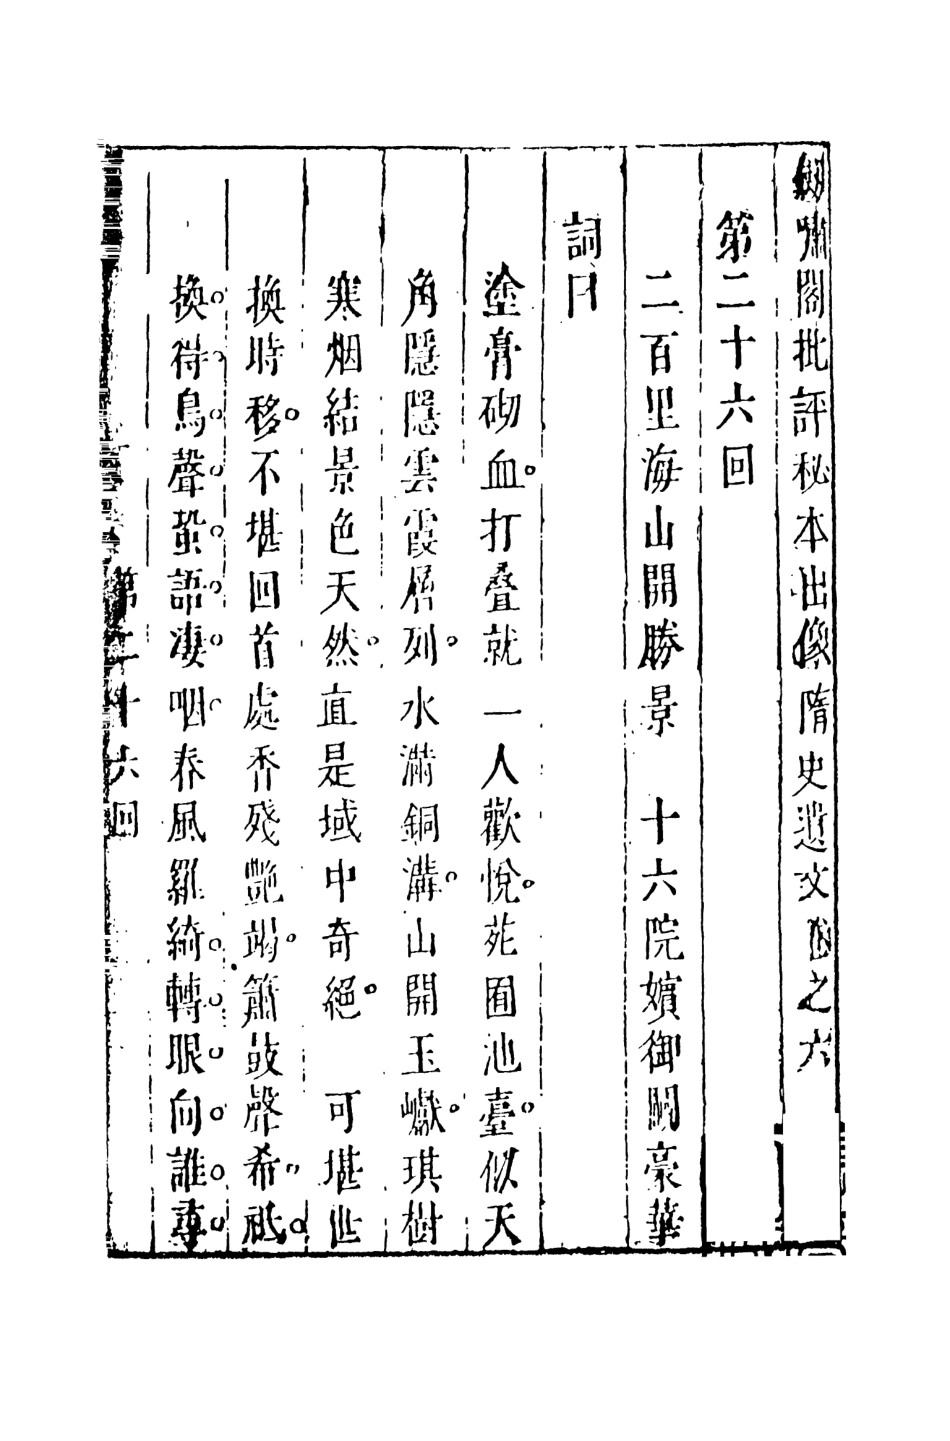 劍嘯閣批評秘本出像隋史遺文卷之六
第二十六回
二百里海山開勝景　十六院嬪御鬭豪華
詞曰
塗膏砌血。打疊就一人歡悅。苑囿池臺。似天
角隱隱雲霞層列。水滿銅溝。山開玉巘。琪樹
寒烟結景色天然。直是域中奇絕。　可堪世
換時移。不堪回首處香殘艷竭。簫鼓聲希。祗。
換。得。鳥。聲。蛩。語。凄。咽。春風羅綺。轉。眼。向。誰。尋。
第二十六回